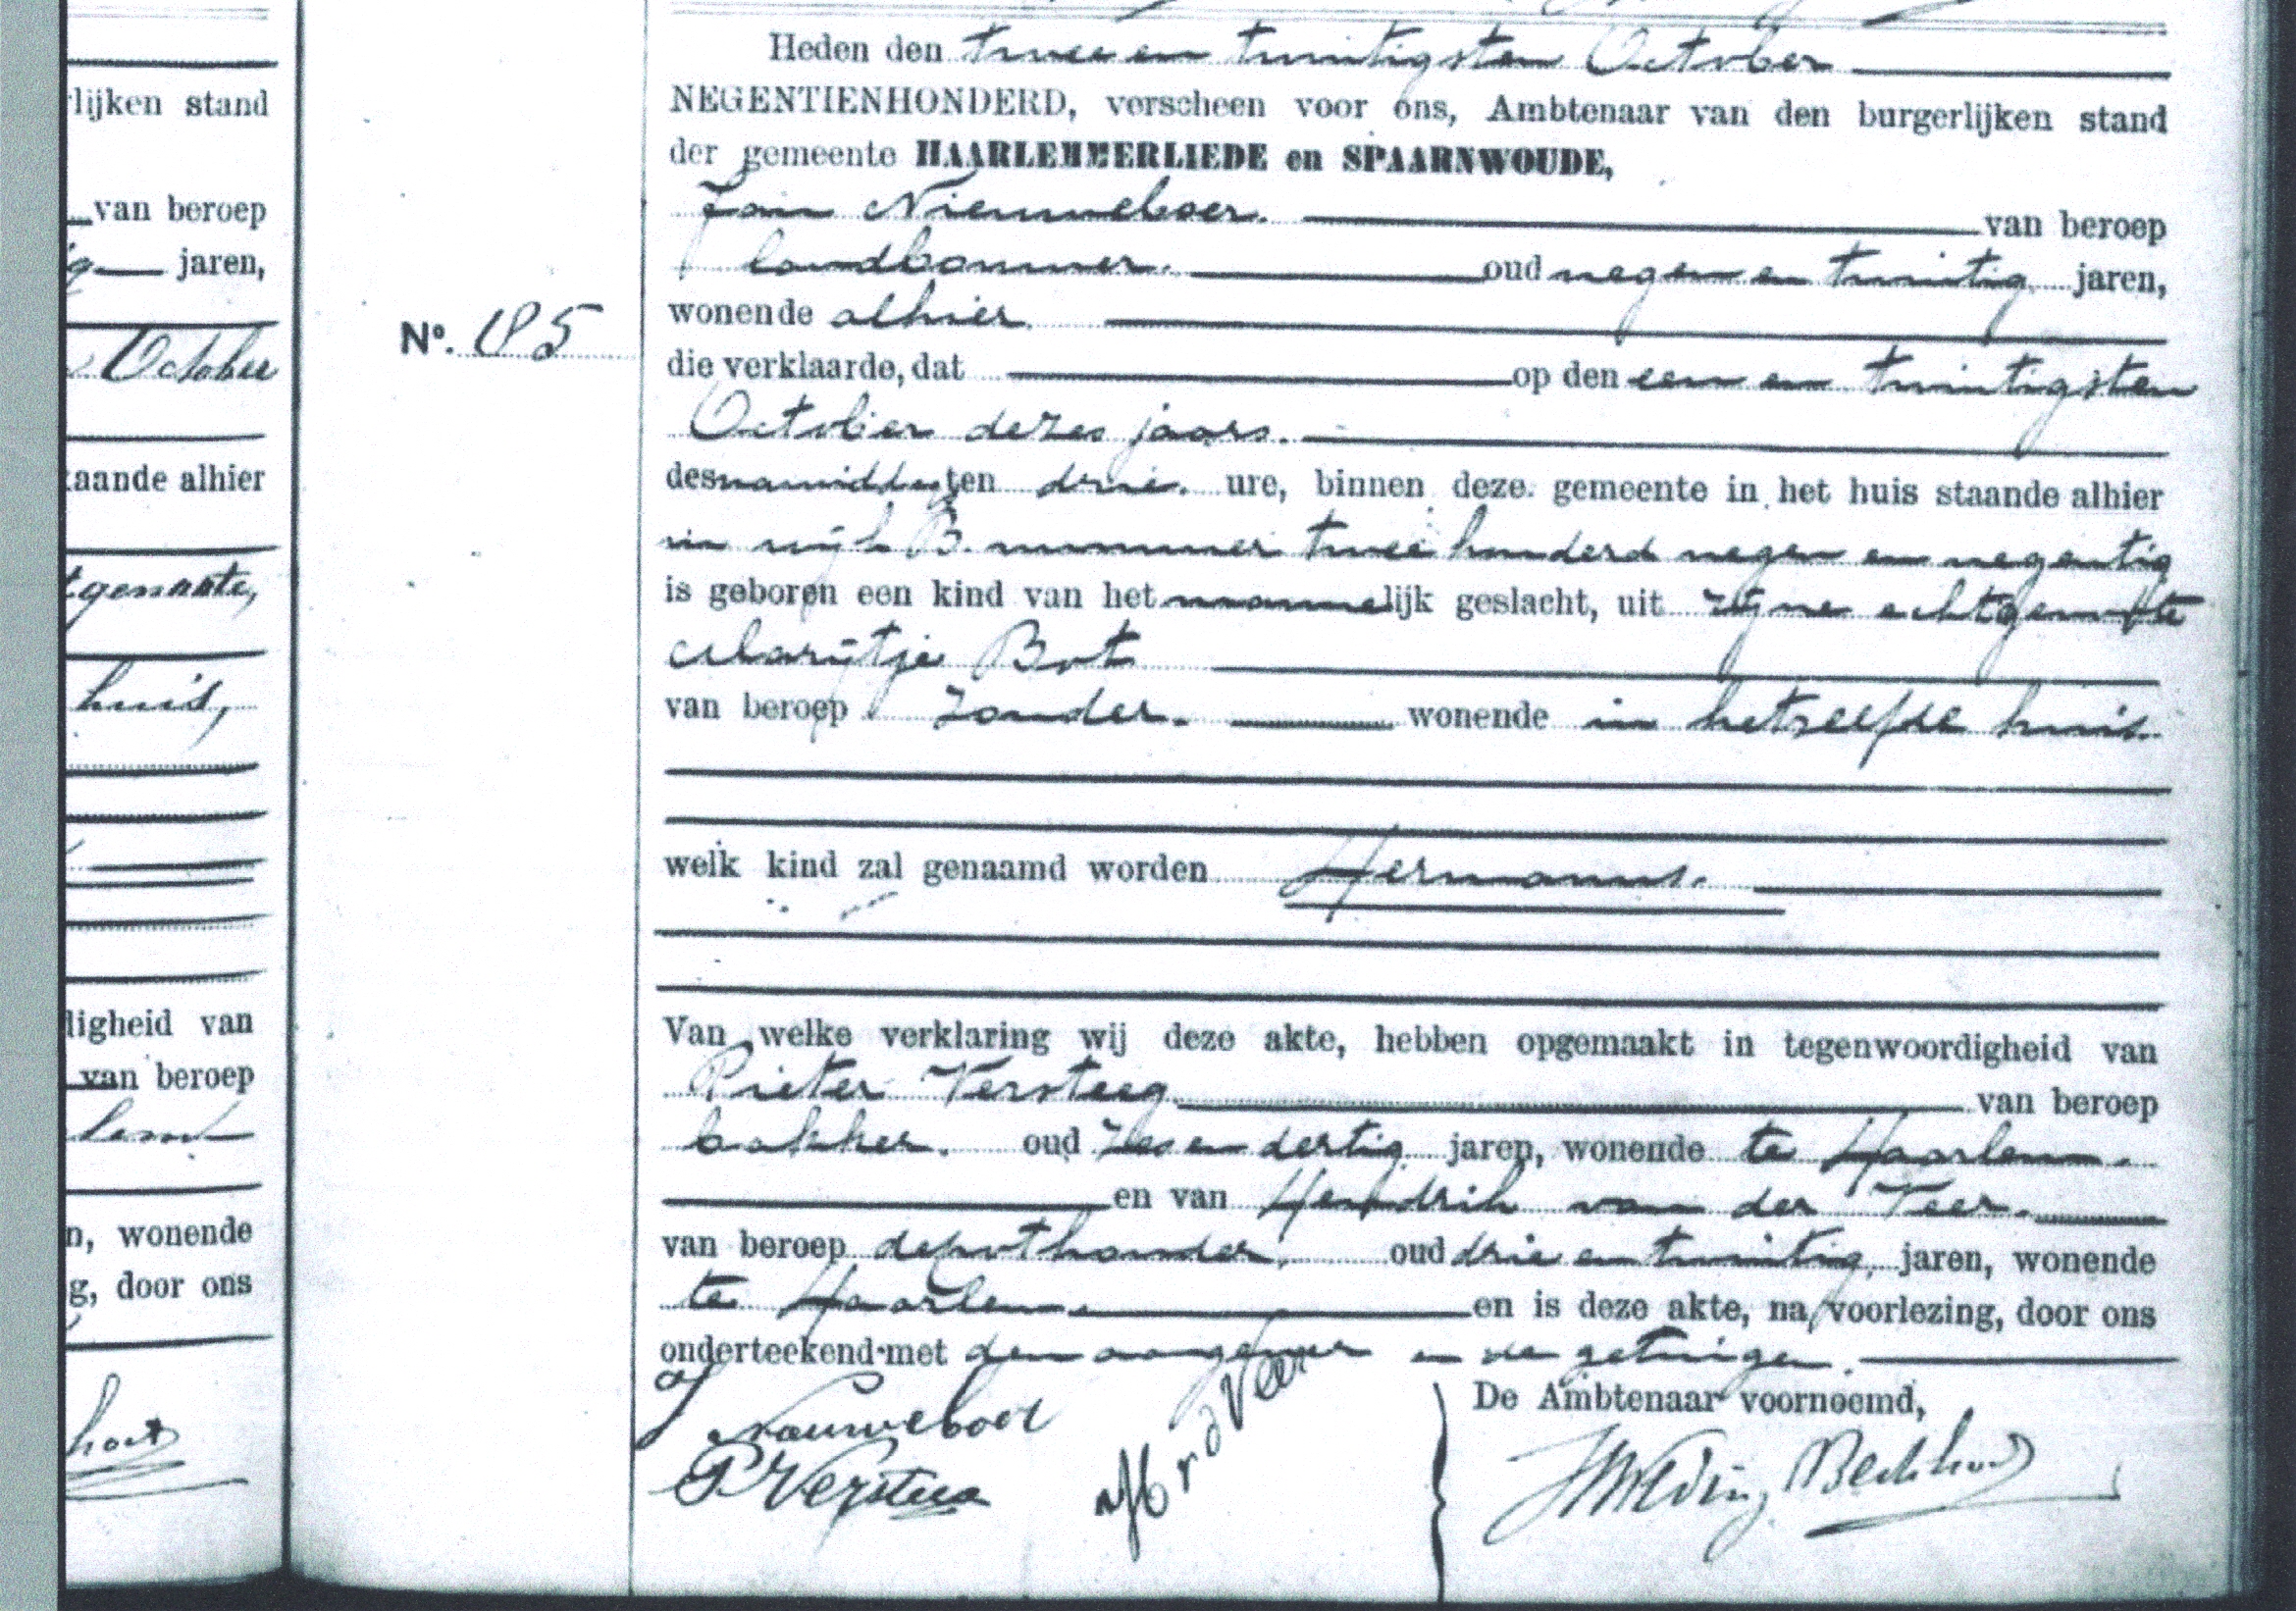 lijken stand
van beroep
jaren,
October
taande alhier
tgenoote,
huis,
ligheid van
van beroep
n, wonende
g, door ons
Heden den twee en twintigsten October
NEGENTIENHONDERD, verscheen voor ons, Ambtenaar van den burgerlijken stand
der gemeente HAARLEMMERLIEDE en SPAARNWOUDE,
Jan Nieuweboer. van beroep
landbouwer. oud negen en twintig jaren,
wonende alhier.
No. 185
die verklaarde, dat op den een en twintigsten
October dezes jaars.
des namiddags ten drie. ure, binnen deze gemeente in het huis staande alhier
in wijk B. nummer twee honderd negen en negentig
is geboren een kind van het mannelijk geslacht, uit zijne echtgenoote
Marijtje Bot
van beroep zonder. wonende in hetzelfde huis.
welk kind zal genaamd worden Hermanus.
Van welke verklaring wij deze akte, hebben opgemaakt in tegenwoordigheid van
Pieter Versteeg van beroep
bakker. oud zes en dertig jaren, wonende te Haarlem.
en van Hendrik van der Veer.
van beroep depothouder, oud drie en twintig, jaren, wonende
te Haarlem. en is deze akte, na voorlezing, door ons
onderteekend met den aangever en de getuigen.
De Ambtenaar voornoemd,
J Nieuweboer
P Versteeg
H v d Veer